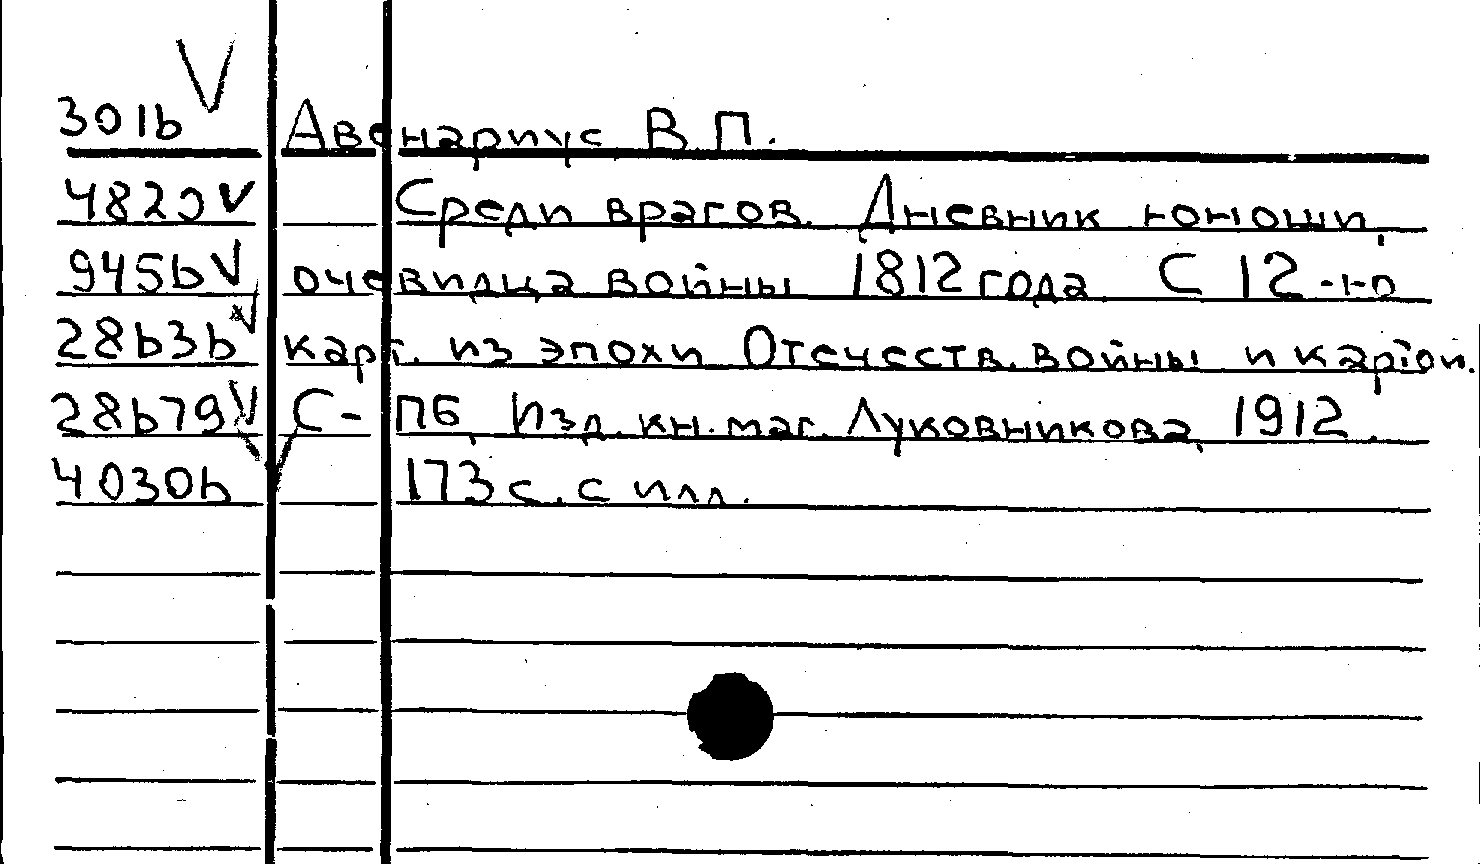 301b V Авенариус В.П.
4820 V Среди врагов. Дневник юноши,
945b V очевидца войны 1812 года С 12-ю
28b3b V карт. из эпохи Отечеств. войны и картой.
28b79 V С-ПБ, Изд. кн. маг. Луковникова, 1912.
4030b 173 с. с илл.